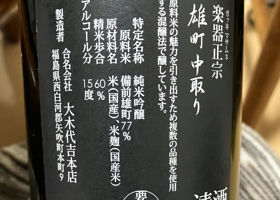 ガッキマサムネ
楽器正宗
雄町中取り
原料米の魅力を引き出すため複数の品種を使用
する混醸法で醸しています。
特定名称 純米吟醸
原料米 備前雄町77%
原材料名 米(国産)米麹(国産米)
精米歩合 60%
アルコール分 15度
製造者 合名会社 大木代吉本店
福島県西白河郡矢吹町本町9
要
清酒